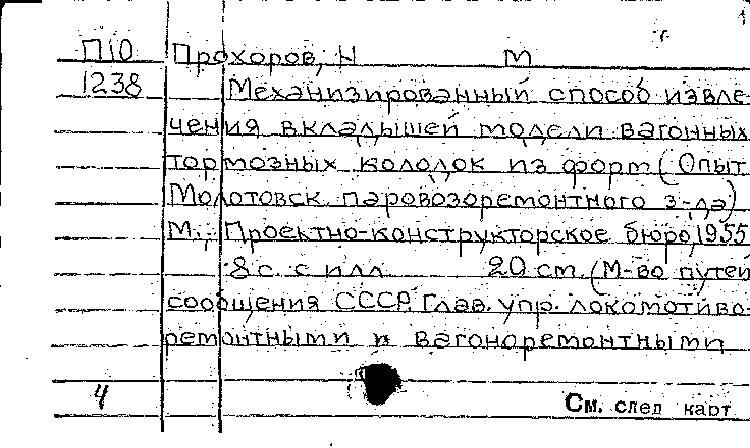 П10 Прохоров, Н М
1238 Механизированный способ извле-
чения вкладышей модели вагонных
тормозных колодок из форм (Опыт
Молотовск. паровозоремонтного з-да)
М., Проектно-конструкторское бюро, 1955
8 с. с илл 20 см. (М-во путей
сообщения СССР. Глав. упр. локомотиво-
ремонтными и вагоноремонтными
4 См. след карт